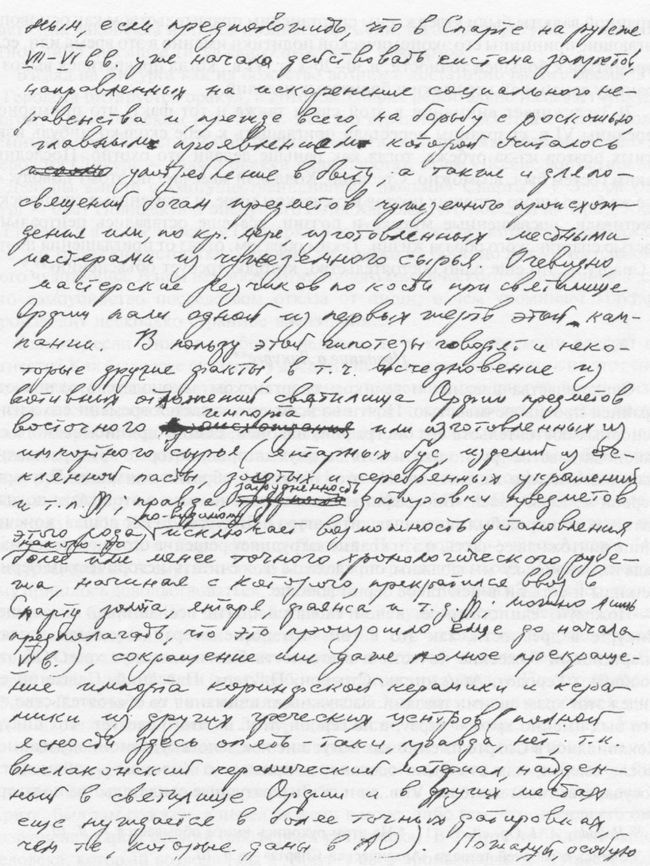 ным, если предположить, что в Спарте на рубеже
VII-VI вв. уже начала действовать система запретов,
направленных на искоренение социального не-
равенства и прежде всего на борьбу с роскошью
главным проявлением которой считалось
употребление в быту, а также и для по-
священий богам предметов чужеземного происхож-
дения или по кр. мере изготовленных местными
мастерами из чужеземного сырья. Очевидно,
мастерские резчиков по кости при святилище
Орфии пали одной из первых жертв этой кам-
пании. В пользу этой гипотезы говорят и неко-
торые другие факты в т.ч. исчезновение из
вотивных отложений святилища Орфии предметов
восточного импорта или изготовленных из
импортного сырья, янтарных бус, изделий из сте-
клянной пасты, золотых и серебряных украшений
и т.п. (правда затруднённость датировки предметов
этого рода по-видимому исключает возможность установления
более или менее точного хронологического рубе-
жа, начиная с которого прекратился ввоз в
Спарту золота, янтаря, фаянса и т.д., можно лишь
предполагать, что это произошло ещё до начала
VI в.), сокращение или даже полное прекраще-
ние импорта коринфской керамики и кера-
мики из других греческих центров (полной
ясности здесь опять таки правда нет, т.к.
внелаконский керамический материал, найден-
ный в святилище Орфии и в других местах
еще нуждается в более точных датировках,
чем те которые даны в АО). Пожалуй, особую